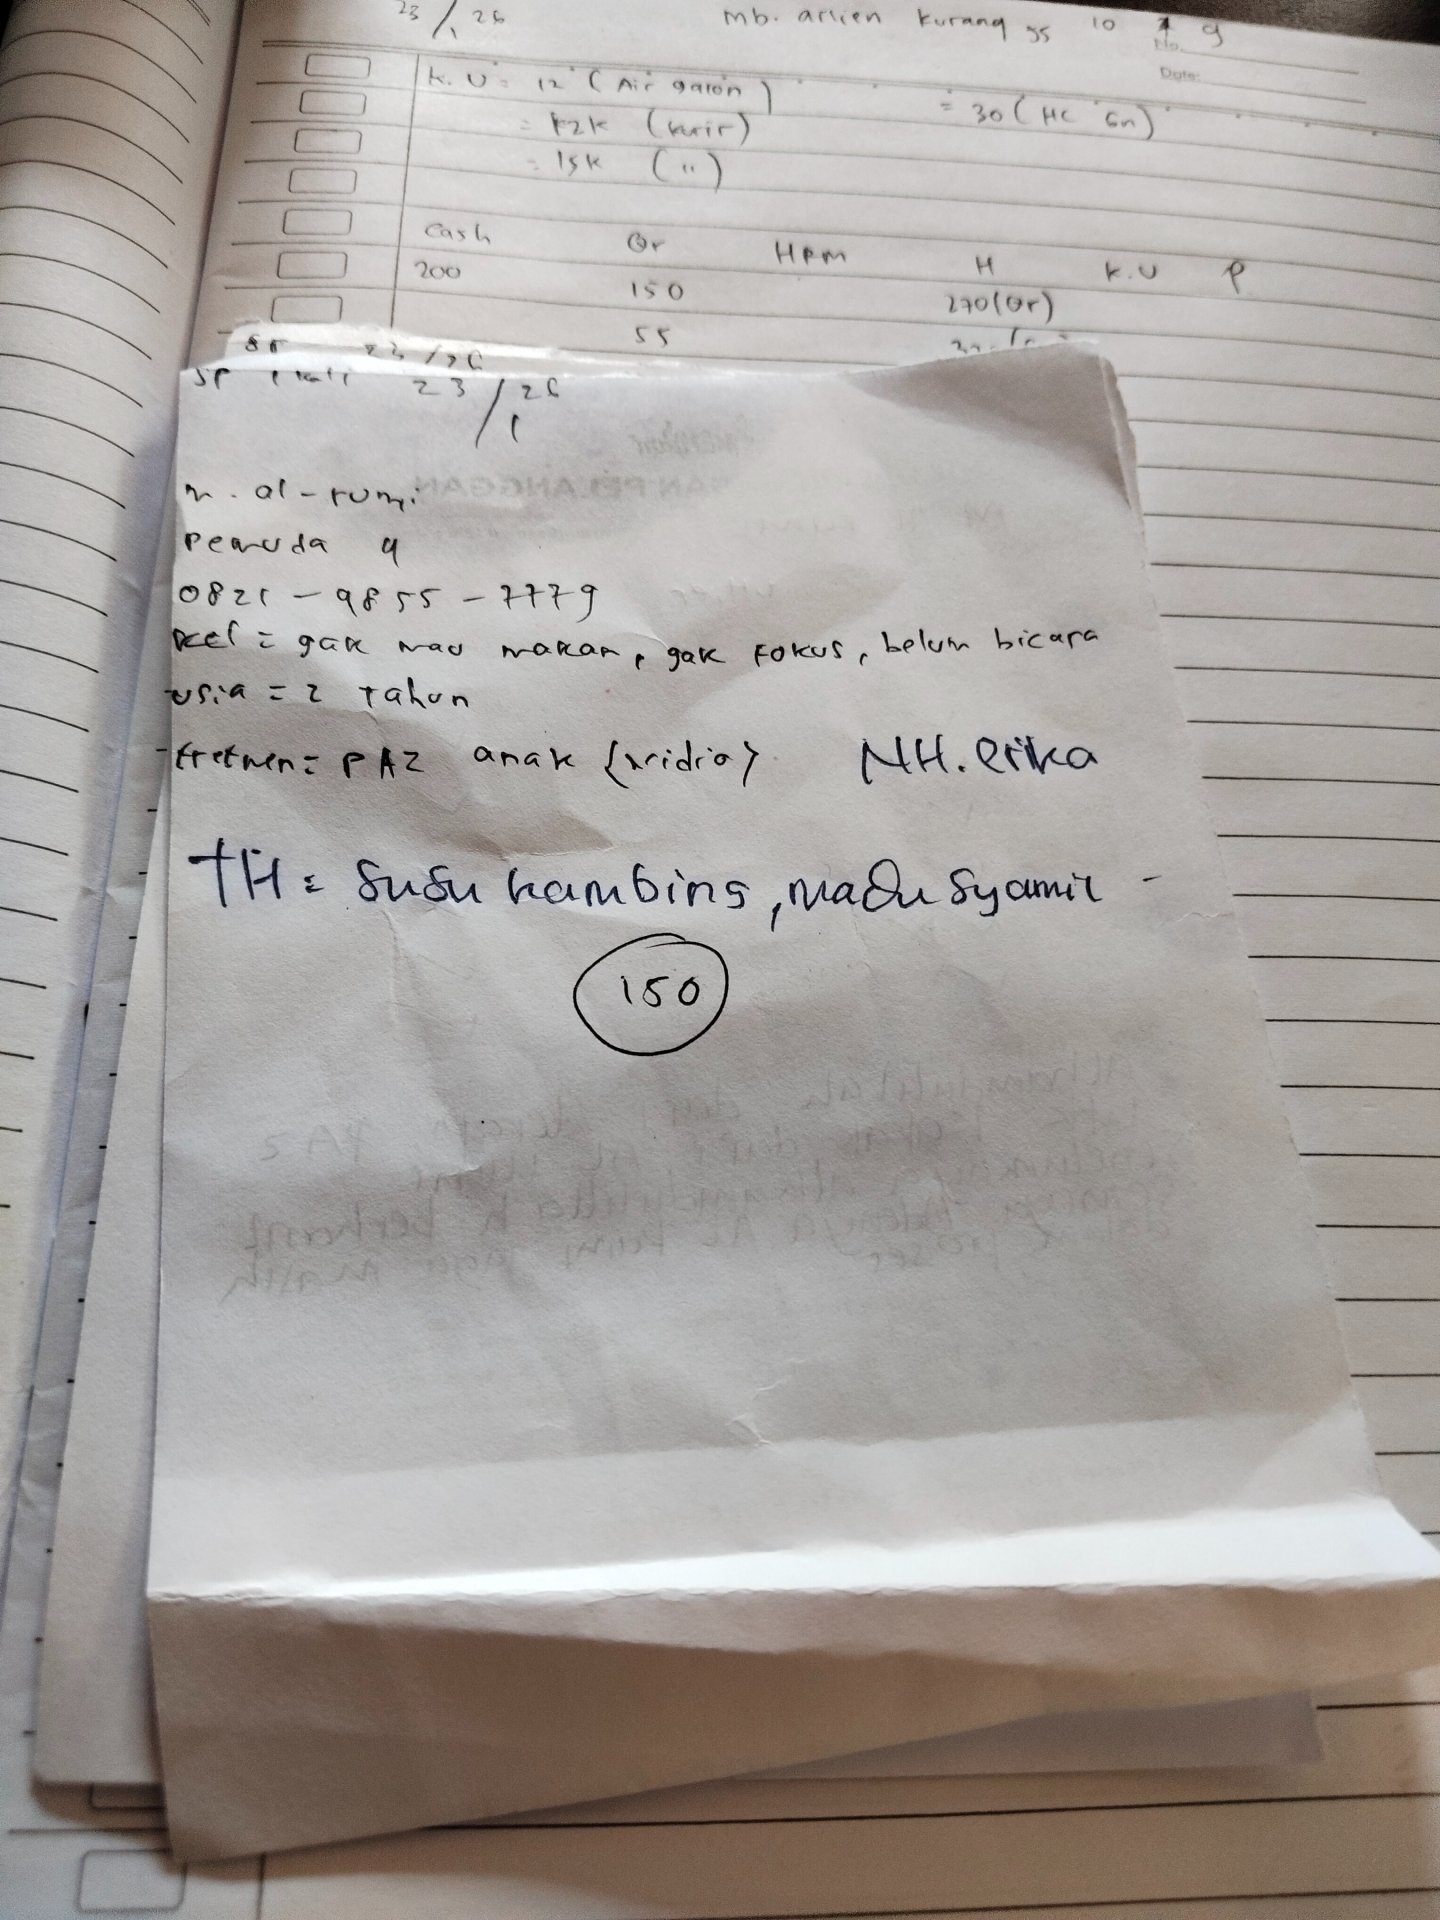 23/1 26 mb. arlien kurang 55 10 g
No.
Date:
K.U = 12 (Air galon) = 30 (HC Gn)
= 12k (kurir)
= 15k (")
Cash Qr HPM H K.U P
200 150 270 (Qr)
55
23/26
SP 1 kali 23/1 26
m. al-rumi
Pemuda 4
0821-9855-7779
kel = gak mau makan, gak fokus, belum bicara
usia = 2 tahun
tretmen = PAZ anak {xridio} NH. erika
TH = Susu kambing, madu syamil -
150